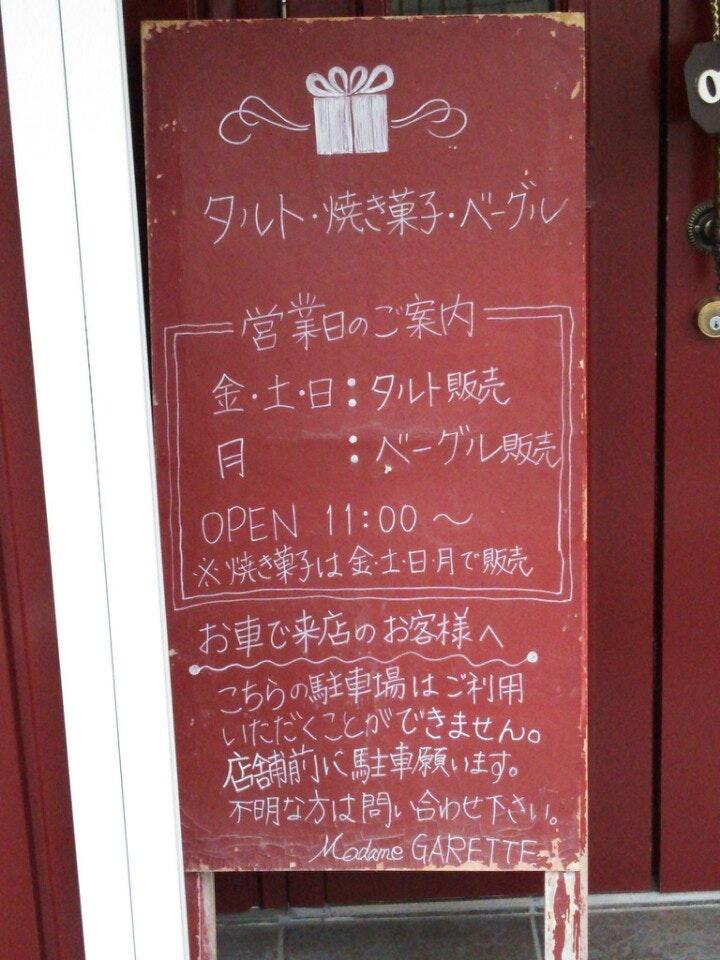 タルト・焼き菓子・ベーグル
営業日のご案内
金・土・日：タルト販売
月　　　：ベーグル販売
OPEN 11:00 〜
※焼き菓子は金・土・日・月で販売
お車で来店のお客様へ
こちらの駐車場はご利用
いただくことができません。
店舗前に駐車願います。
不明な方は問い合わせ下さい。
Madame GARETTE